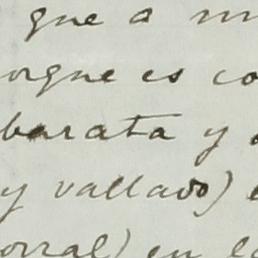 que a
orque es co
barata y
y vallado)
orral) en lo